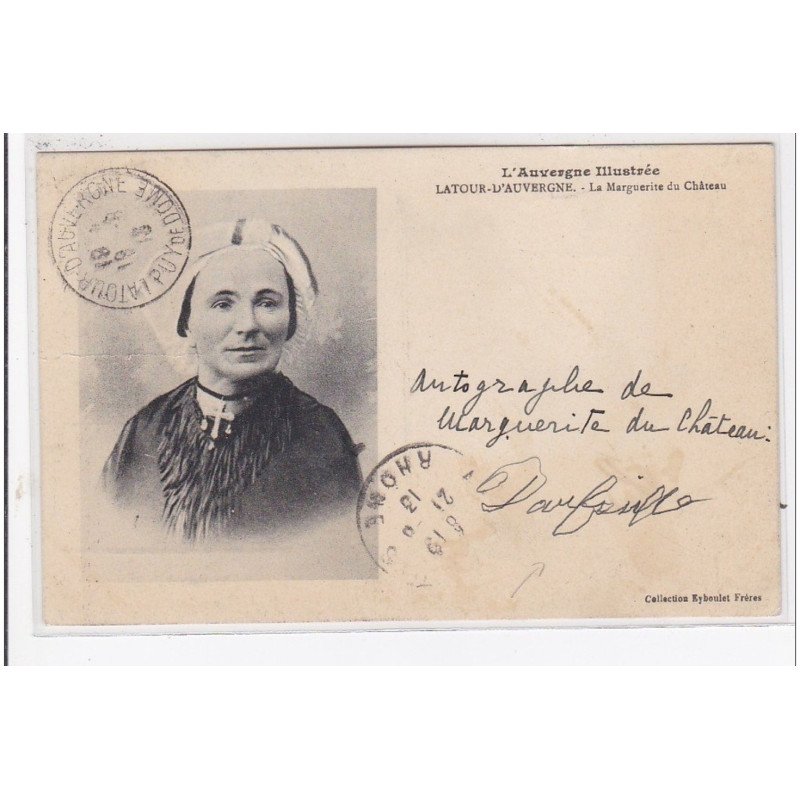 L'Auvergne Illustrée
LATOUR-D'AUVERGNE. - La Marguerite du Château
LATOUR-D'AUVERGNE PUY DE DOME
Autographe de
Marguerite du Château:
RHONE
21
13
Collection Eyboulet Fréres